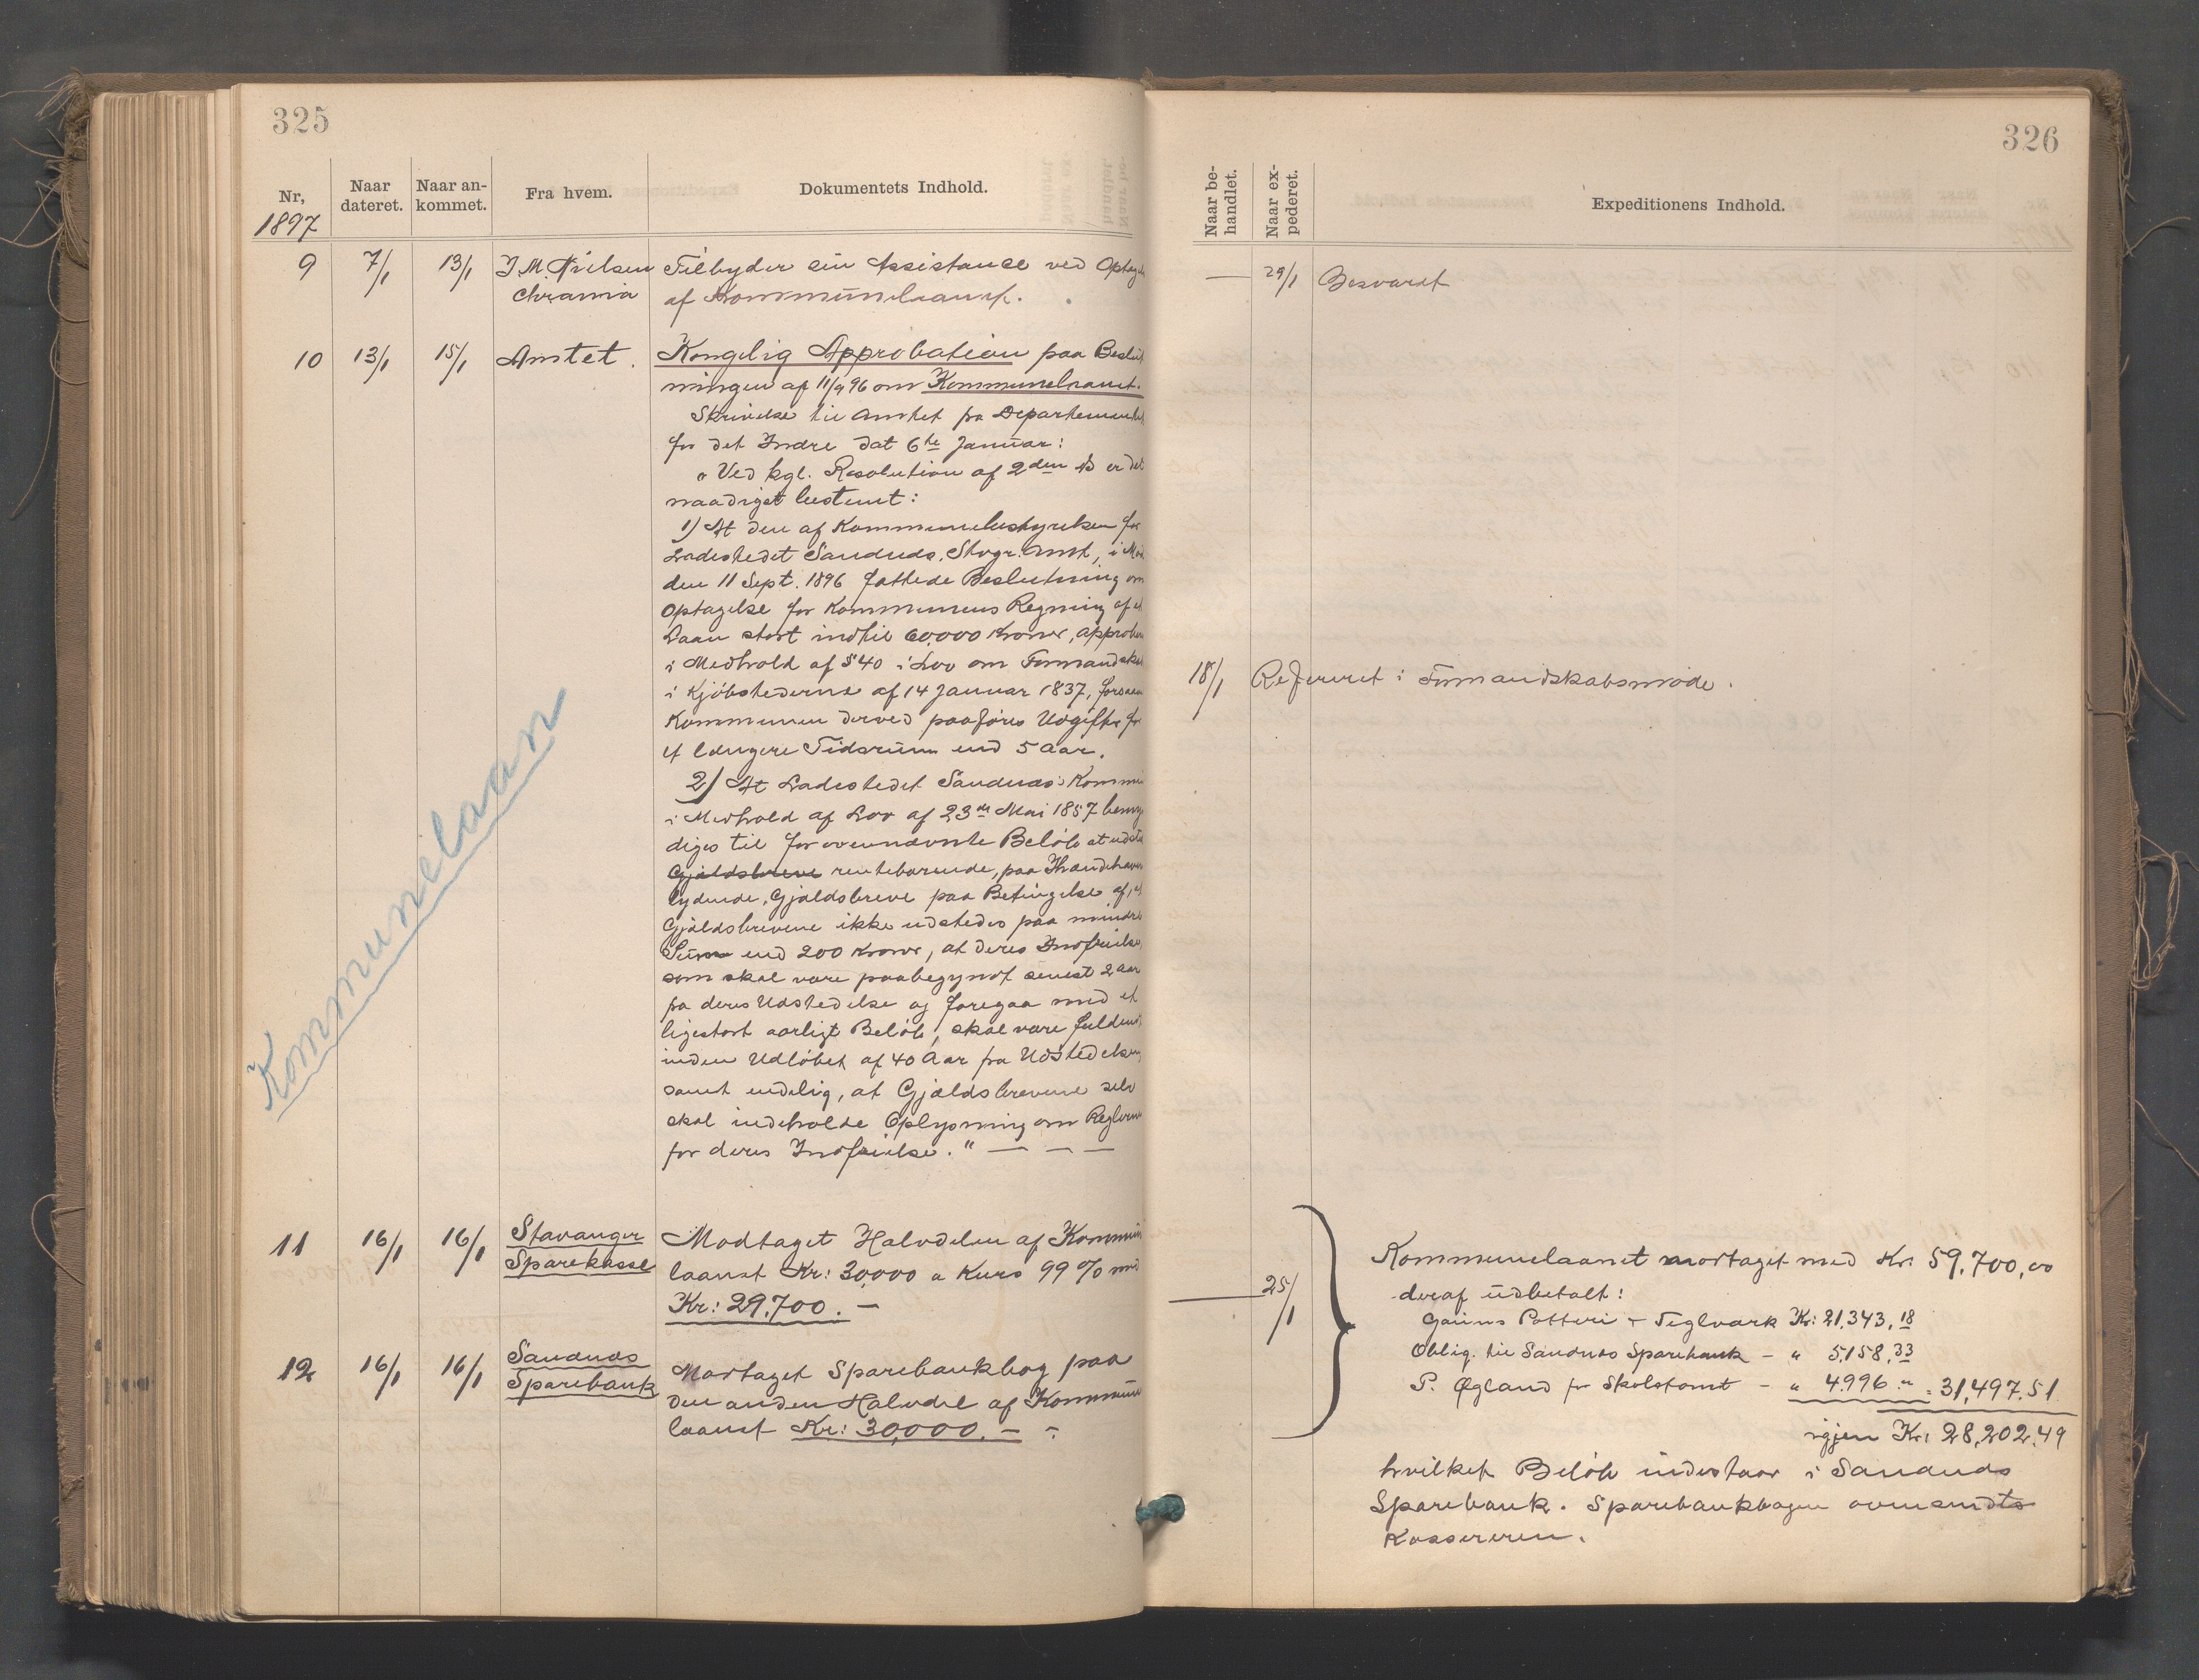 325
Nr,
1897
Naar
dateret.
Naar an-
kommet.
Fra hvem.
Dokumentets Indhold.
9 7/1 13/1 J. M. Nielsen Tilbyder sin Assistance ved Optag
Chrania af Kommunelaanet.
10 13/1 15/1 Amtet. Kongelig Approbation paa Beslut
ningen af 11/9 96 om Kommunelaanet.
Skrivelse til Amtet fra Departementet
for det Indre dat 6te Januar:
"Ved kgl. Resolution af 2den ds er det
naadigst bestemt:
1) At den af Kommunebestyrelsen for
Ladestedet Sandnæs, Stvgr. Amt, i Mø
den 11 Sept. 1896 fattede Beslutning om
Optagelse for Kommunens Regning af et
Laan stort indtil 60,000 Kroner, approber
i Medhold af § 40 i Lov om Formandskab
i Kjøbstederne af 14 Januar 1837, forsaa
Kommunen derved paaføres Udgifter for
et længere Tidsrum end 5 Aar.
2) At Ladestedet Sandnæs's Kommu
i Medhold af Lov af 23de Mai 1857 bemyn
diges til for ovennævnte Beløb at udste
Gjældsbreve rentebærende, paa Ihændehaver
lydende, Gjældsbreve paa Betingelse af, at
Gjældsbrevene ikke udstedes paa mindre
Sum end 200 Kroner, at deres Indfrielse,
som skal være paabegyndt senest 2 Aar
fra deres Udstedelse og foregaa med et
ligestort aarligt Beløb, skal være fuldend
inden Udløbet af 40 Aar fra Udstedelsen,
samt endelig, at Gjældsbrevene selv
skal indeholde Oplysning om Reglerne
for deres Indfrielse." — — —
Kommunelaan
11 16/1 16/1 Stavanger Modtaget Halvdelen af Kommun
Sparekasse laanet Kr: 30,000 a Kurs 99 % med
Kr: 29,700. —
12 16/1 16/1 Sandnæs Modtaget Sparebankbog paa
Sparebank den anden Halvdel af Kommune
laanet Kr: 30,000. —
326
Naar be-
handlet.
Naar ex-
pederet.
Expeditionens Indhold.
— 29/1 Besvaret
18/1 Refereret i Formandskabsmøde.
25/1
Kommunelaanet modtaget med Kr. 59,700,00
deraf udbetalt:
Gauns Potteri & Teglværk Kr: 21,343,18
Oblig. til Sandnæs Sparebank – " 5,158,33
P. Øgland for Skoletomt – " 4,996 " = 31,497,51
igjen Kr: 28,202,49
hvilket Beløb indestaar i Sandnæs
Sparebank. Sparebankbogen oversendts
Kassereren.